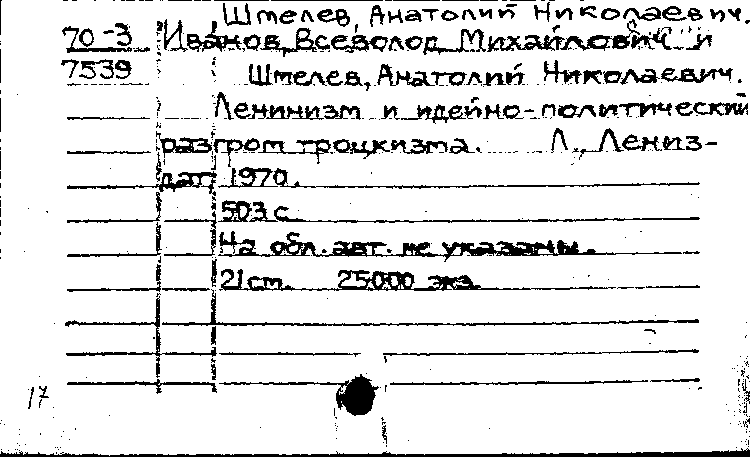 Штелев, Анатолий Николаевич.
70-3 Иванов, Всеволод Михайлович и
7539 Штелев, Анатолий Николаевич.
Ленинизм и идейно-политический
разгром троцкизма. Л., Лениз-
дат, 1970.
503 с.
На обл. авт. не указаны.
21 см. 25000 экз.
17